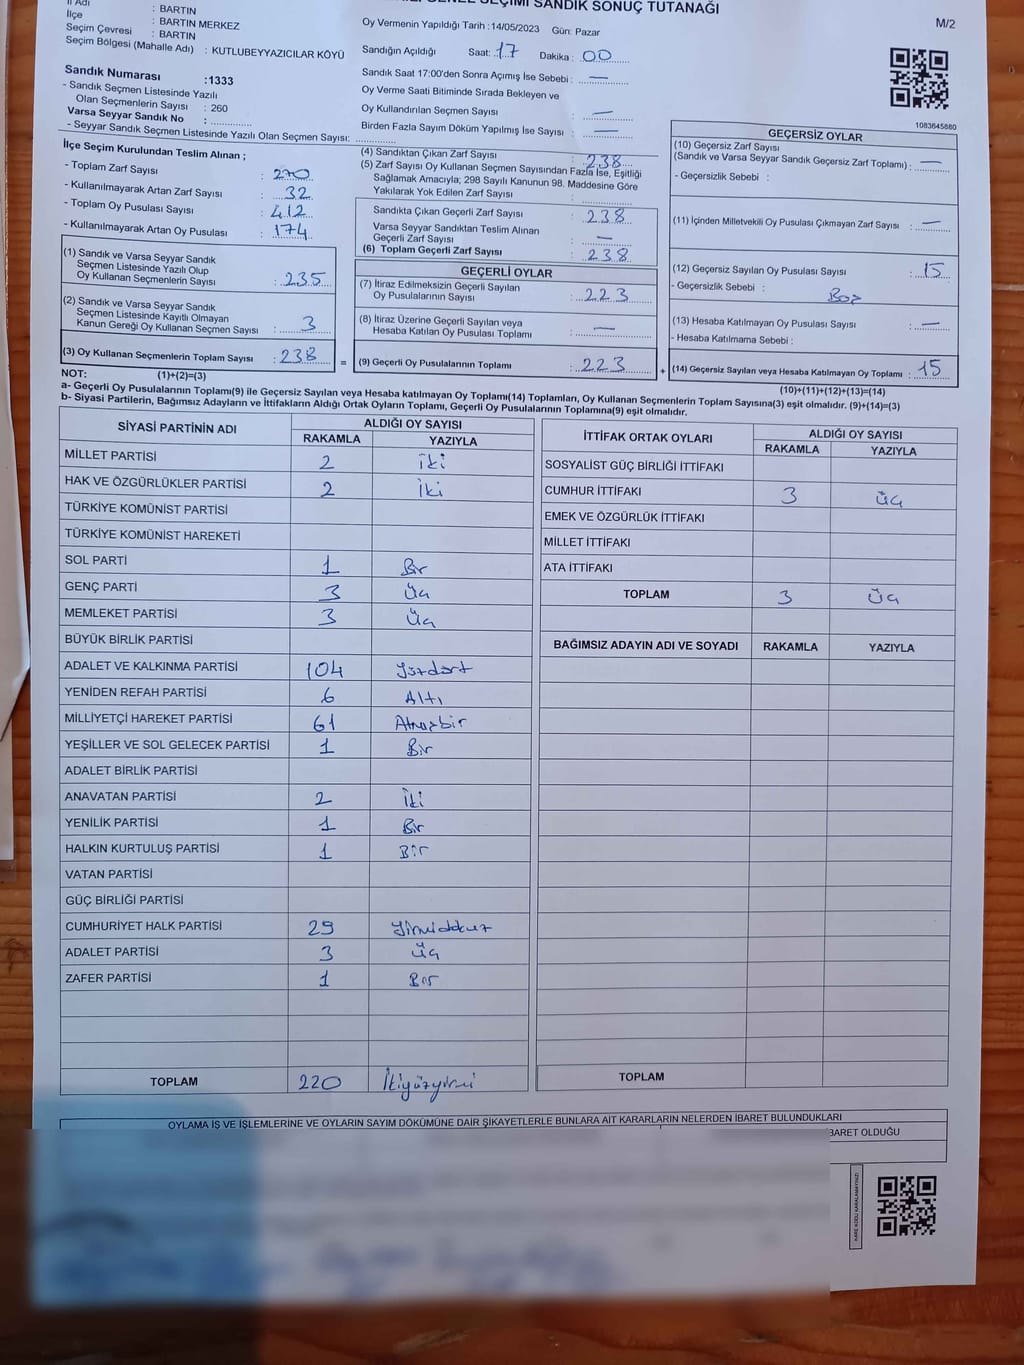 GENEL SEÇİMİ SANDIK SONUÇ TUTANAĞI
M/2
İl Adı : BARTIN
İlçe : BARTIN MERKEZ
Seçim Çevresi : BARTIN
Seçim Bölgesi (Mahalle Adı) : KUTLUBEYYAZICILAR KÖYÜ
Oy Vermenin Yapıldığı Tarih : 14/05/2023 Gün: Pazar
Sandığın Açıldığı Saat: 17 Dakika : 00
Sandık Saat 17:00'den Sonra Açımış İse Sebebi : —
Oy Verme Saati Bitiminde Sırada Bekleyen ve
Oy Kullandırılan Seçmen Sayısı : —
Birden Fazla Sayım Döküm Yapılmış İse Sayısı : —
Sandık Numarası : 1333
- Sandık Seçmen Listesinde Yazılı
Olan Seçmenlerin Sayısı : 260
Varsa Seyyar Sandık No :
- Seyyar Sandık Seçmen Listesinde Yazılı Olan Seçmen Sayısı:
İlçe Seçim Kurulundan Teslim Alınan ;
- Toplam Zarf Sayısı : 270
- Kullanılmayarak Artan Zarf Sayısı : 32
- Toplam Oy Pusulası Sayısı : 412
- Kullanılmayarak Artan Oy Pusulası : 174
(1) Sandık ve Varsa Seyyar Sandık
Seçmen Listesinde Yazılı Olup
Oy Kullanan Seçmenlerin Sayısı : 235
(2) Sandık ve Varsa Seyyar Sandık
Seçmen Listesinde Kayıtlı Olmayan
Kanun Gereği Oy Kullanan Seçmen Sayısı : 3
(3) Oy Kullanan Seçmenlerin Toplam Sayısı : 238
(4) Sandıktan Çıkan Zarf Sayısı : 238
(5) Zarf Sayısı Oy Kullanan Seçmen Sayısından Fazla İse, Eşitliği
Sağlamak Amacıyla; 298 Sayılı Kanunun 98. Maddesine Göre
Yakılarak Yok Edilen Zarf Sayısı :
Sandıkta Çıkan Geçerli Zarf Sayısı : 238
Varsa Seyyar Sandıktan Teslim Alınan
Geçerli Zarf Sayısı : —
(6) Toplam Geçerli Zarf Sayısı : 238
GEÇERLİ OYLAR
(7) İtiraz Edilmeksizin Geçerli Sayılan
Oy Pusulalarının Sayısı : 223
(8) İtiraz Üzerine Geçerli Sayılan veya
Hesaba Katılan Oy Pusulası Toplamı : —
= (9) Geçerli Oy Pusulalarının Toplamı : 223
1083645880
GEÇERSİZ OYLAR
(10) Geçersiz Zarf Sayısı
(Sandık ve Varsa Seyyar Sandık Geçersiz Zarf Toplamı) : —
- Geçersizlik Sebebi :
(11) İçinden Milletvekili Oy Pusulası Çıkmayan Zarf Sayısı : —
(12) Geçersiz Sayılan Oy Pusulası Sayısı : 15
- Geçersizlik Sebebi : Boş
(13) Hesaba Katılmayan Oy Pusulası Sayısı : —
- Hesaba Katılmama Sebebi :
+ (14) Geçersiz Sayılan veya Hesaba Katılmayan Oy Toplamı : 15
NOT: (1)+(2)=(3)
(10)+(11)+(12)+(13)=(14)
a- Geçerli Oy Pusulalarının Toplamı(9) ile Geçersiz Sayılan veya Hesaba katılmayan Oy Toplamı(14) Toplamları, Oy Kullanan Seçmenlerin Toplam Sayısına(3) eşit olmalıdır. (9)+(14)=(3)
b- Siyasi Partilerin, Bağımsız Adayların ve İttifakların Aldığı Ortak Oyların Toplamı, Geçerli Oy Pusulalarının Toplamına(9) eşit olmalıdır.
SİYASİ PARTİNİN ADI ALDIĞI OY SAYISI
RAKAMLA YAZIYLA
MİLLET PARTİSİ 2 İki
HAK VE ÖZGÜRLÜKLER PARTİSİ 2 İki
TÜRKİYE KOMÜNİST PARTİSİ
TÜRKİYE KOMÜNİST HAREKETİ
SOL PARTİ 1 Bir
GENÇ PARTİ 3 Üç
MEMLEKET PARTİSİ 3 Üç
BÜYÜK BİRLİK PARTİSİ
ADALET VE KALKINMA PARTİSİ 104 Yüzdört
YENİDEN REFAH PARTİSİ 6 Altı
MİLLİYETÇİ HAREKET PARTİSİ 61 Atmışbir
YEŞİLLER VE SOL GELECEK PARTİSİ 1 Bir
ADALET BİRLİK PARTİSİ
ANAVATAN PARTİSİ 2 İki
YENİLİK PARTİSİ 1 Bir
HALKIN KURTULUŞ PARTİSİ 1 Bir
VATAN PARTİSİ
GÜÇ BİRLİĞİ PARTİSİ
CUMHURİYET HALK PARTİSİ 29 Yirmidokuz
ADALET PARTİSİ 3 Üç
ZAFER PARTİSİ 1 Bir
TOPLAM 220 İkiyüzyirmi
İTTİFAK ORTAK OYLARI ALDIĞI OY SAYISI
RAKAMLA YAZIYLA
SOSYALİST GÜÇ BİRLİĞİ İTTİFAKI
CUMHUR İTTİFAKI 3 Üç
EMEK VE ÖZGÜRLÜK İTTİFAKI
MİLLET İTTİFAKI
ATA İTTİFAKI
TOPLAM 3 Üç
BAĞIMSIZ ADAYIN ADI VE SOYADI RAKAMLA YAZIYLA
TOPLAM
OYLAMA İŞ VE İŞLEMLERİNE VE OYLARIN SAYIM DÖKÜMÜNE DAİR ŞİKAYETLERLE BUNLARA AİT KARARLARIN NELERDEN İBARET BULUNDUKLARI
BARET OLDUĞU
KARE KODU KARALAMAYINIZ!